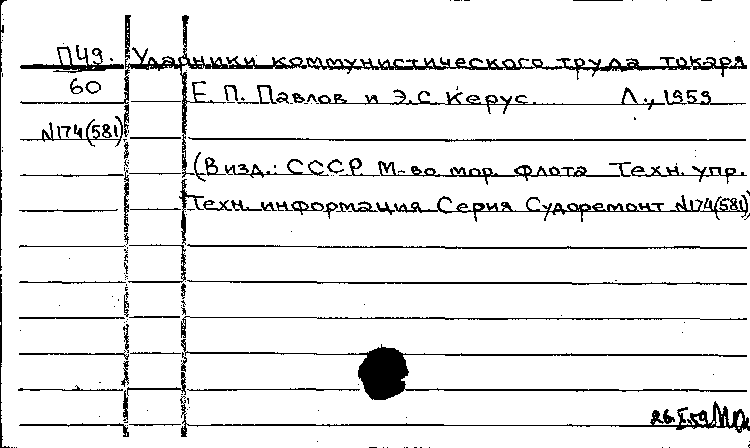 П49. Ударники коммунистического труда токаря
60 Е. П. Павлов и Э.С. Керус. Л., 1959
N174(581)
(В изд.: СССР. М-во мор. флота Техн. упр.
Техн. информация Серия Судоремонт N174(581)
26.I.59